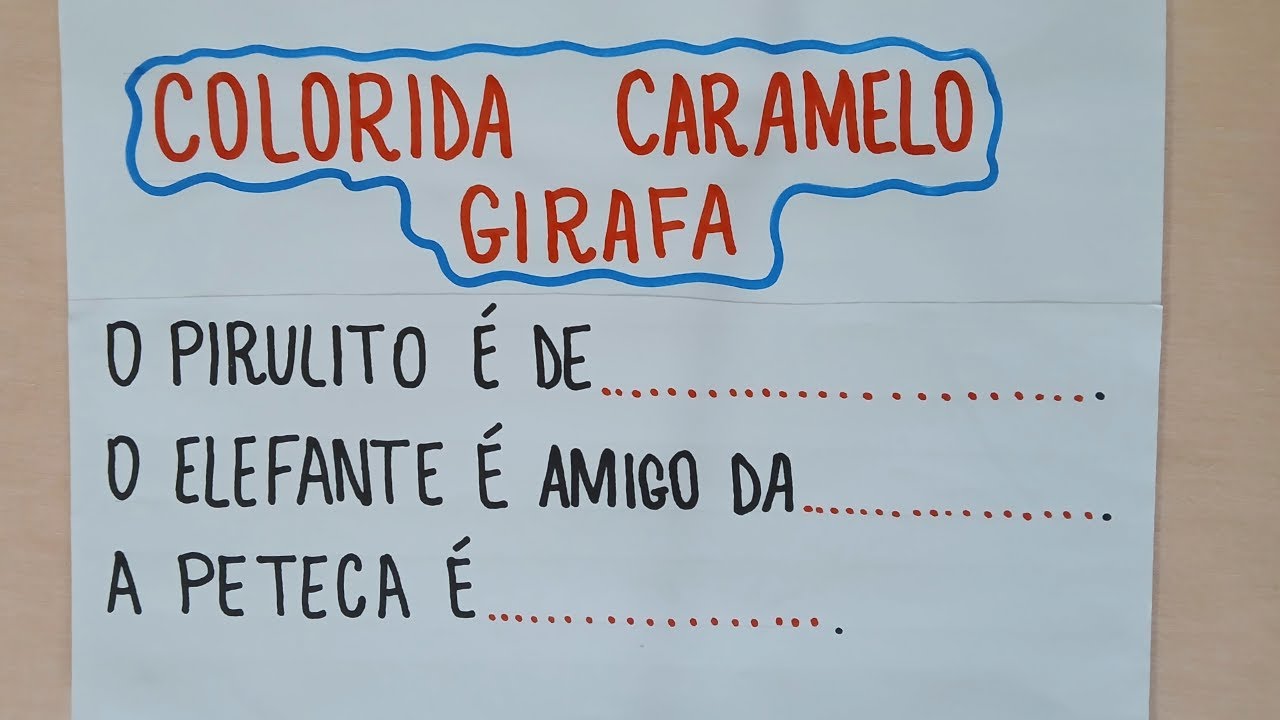 COLORIDA CARAMELO
GIRAFA
O PIRULITO É DE..............................
O ELEFANTE É AMIGO DA....................
A PETECA É.....................